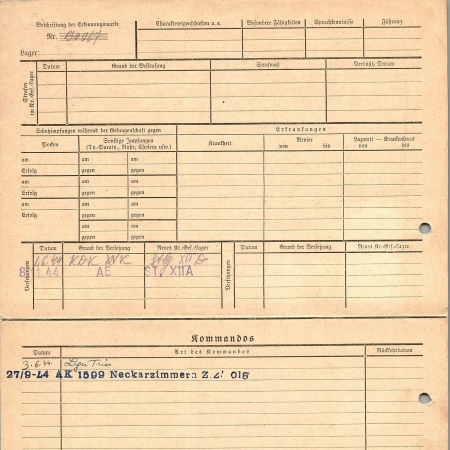 Beschriftung der Erkennungsmarke
Nr.
Lager:
Charaktereigenschaften u. a.
Besondere Fähigkeiten
Sprachkenntnisse
Führung
Strafen im Kr.-Gef.-Lager
Datum
Grund der Bestrafung
Strafmaß
Verbüßt, Datum
Schutzimpfungen während der Gefangenschaft gegen
Erkrankungen
Pocken
Sonstige Impfungen
(Ty.-Paraty., Ruhr, Cholera usw.)
Krankheit
Revier
von bis
Lazarett — Krankenhaus
von bis
am am am
Erfolg gegen gegen
am am am
Erfolg gegen gegen
am am am
Erfolg gegen gegen
am am
gegen gegen
Versetzungen
Datum
Grund der Versetzung
Neues Kr.-Gef.-Lager
Versetzungen
Datum
Grund der Versetzung
Neues Kr.-Gef.-Lager
8 11 44 AE ST. XIIA
Kommandos
Datum
Art des Kommandos
Rückkehrdatum
3.6.44
27/9-44 AK 1599 Neckarzimmern